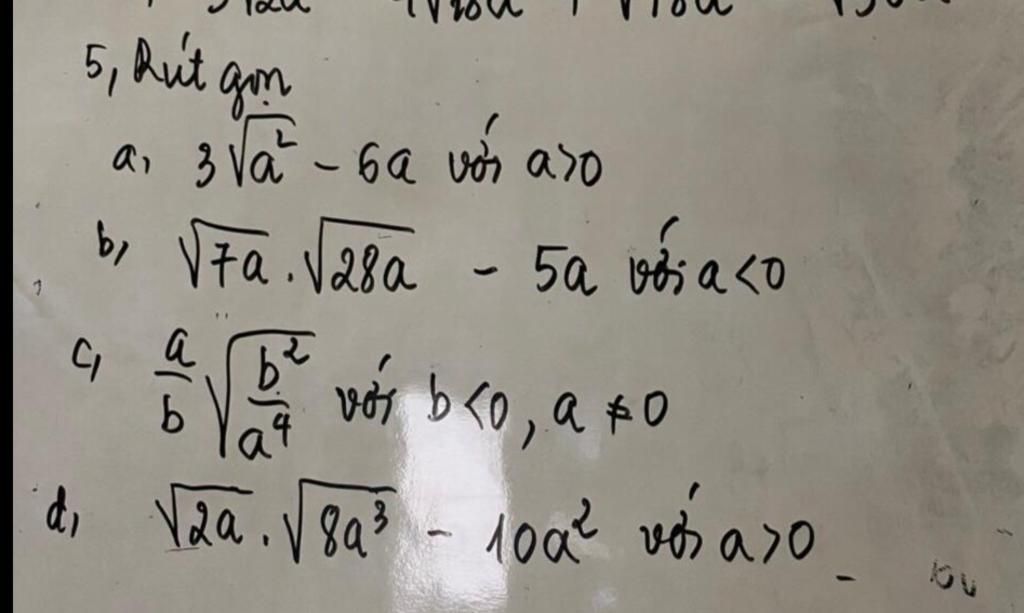 5, Rút gọn
a, 3√a² - 6a với a>0
b, √7a . √28a - 5a với a<0
c, a/b √b²/a⁴ với b<0, a ≠ 0
d, √2a . √8a³ - 10a² với a>0